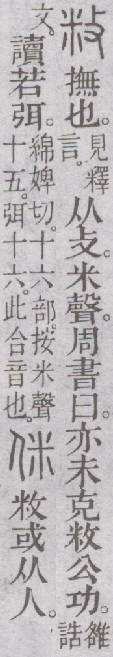 敉 撫也。見釋言。从攴。米聲。周書曰。亦未克敉公功。雒誥
文。讀若弭。綿婢切。十六部。按米聲十五。弭十六。此合音也。侎 敉或从人。